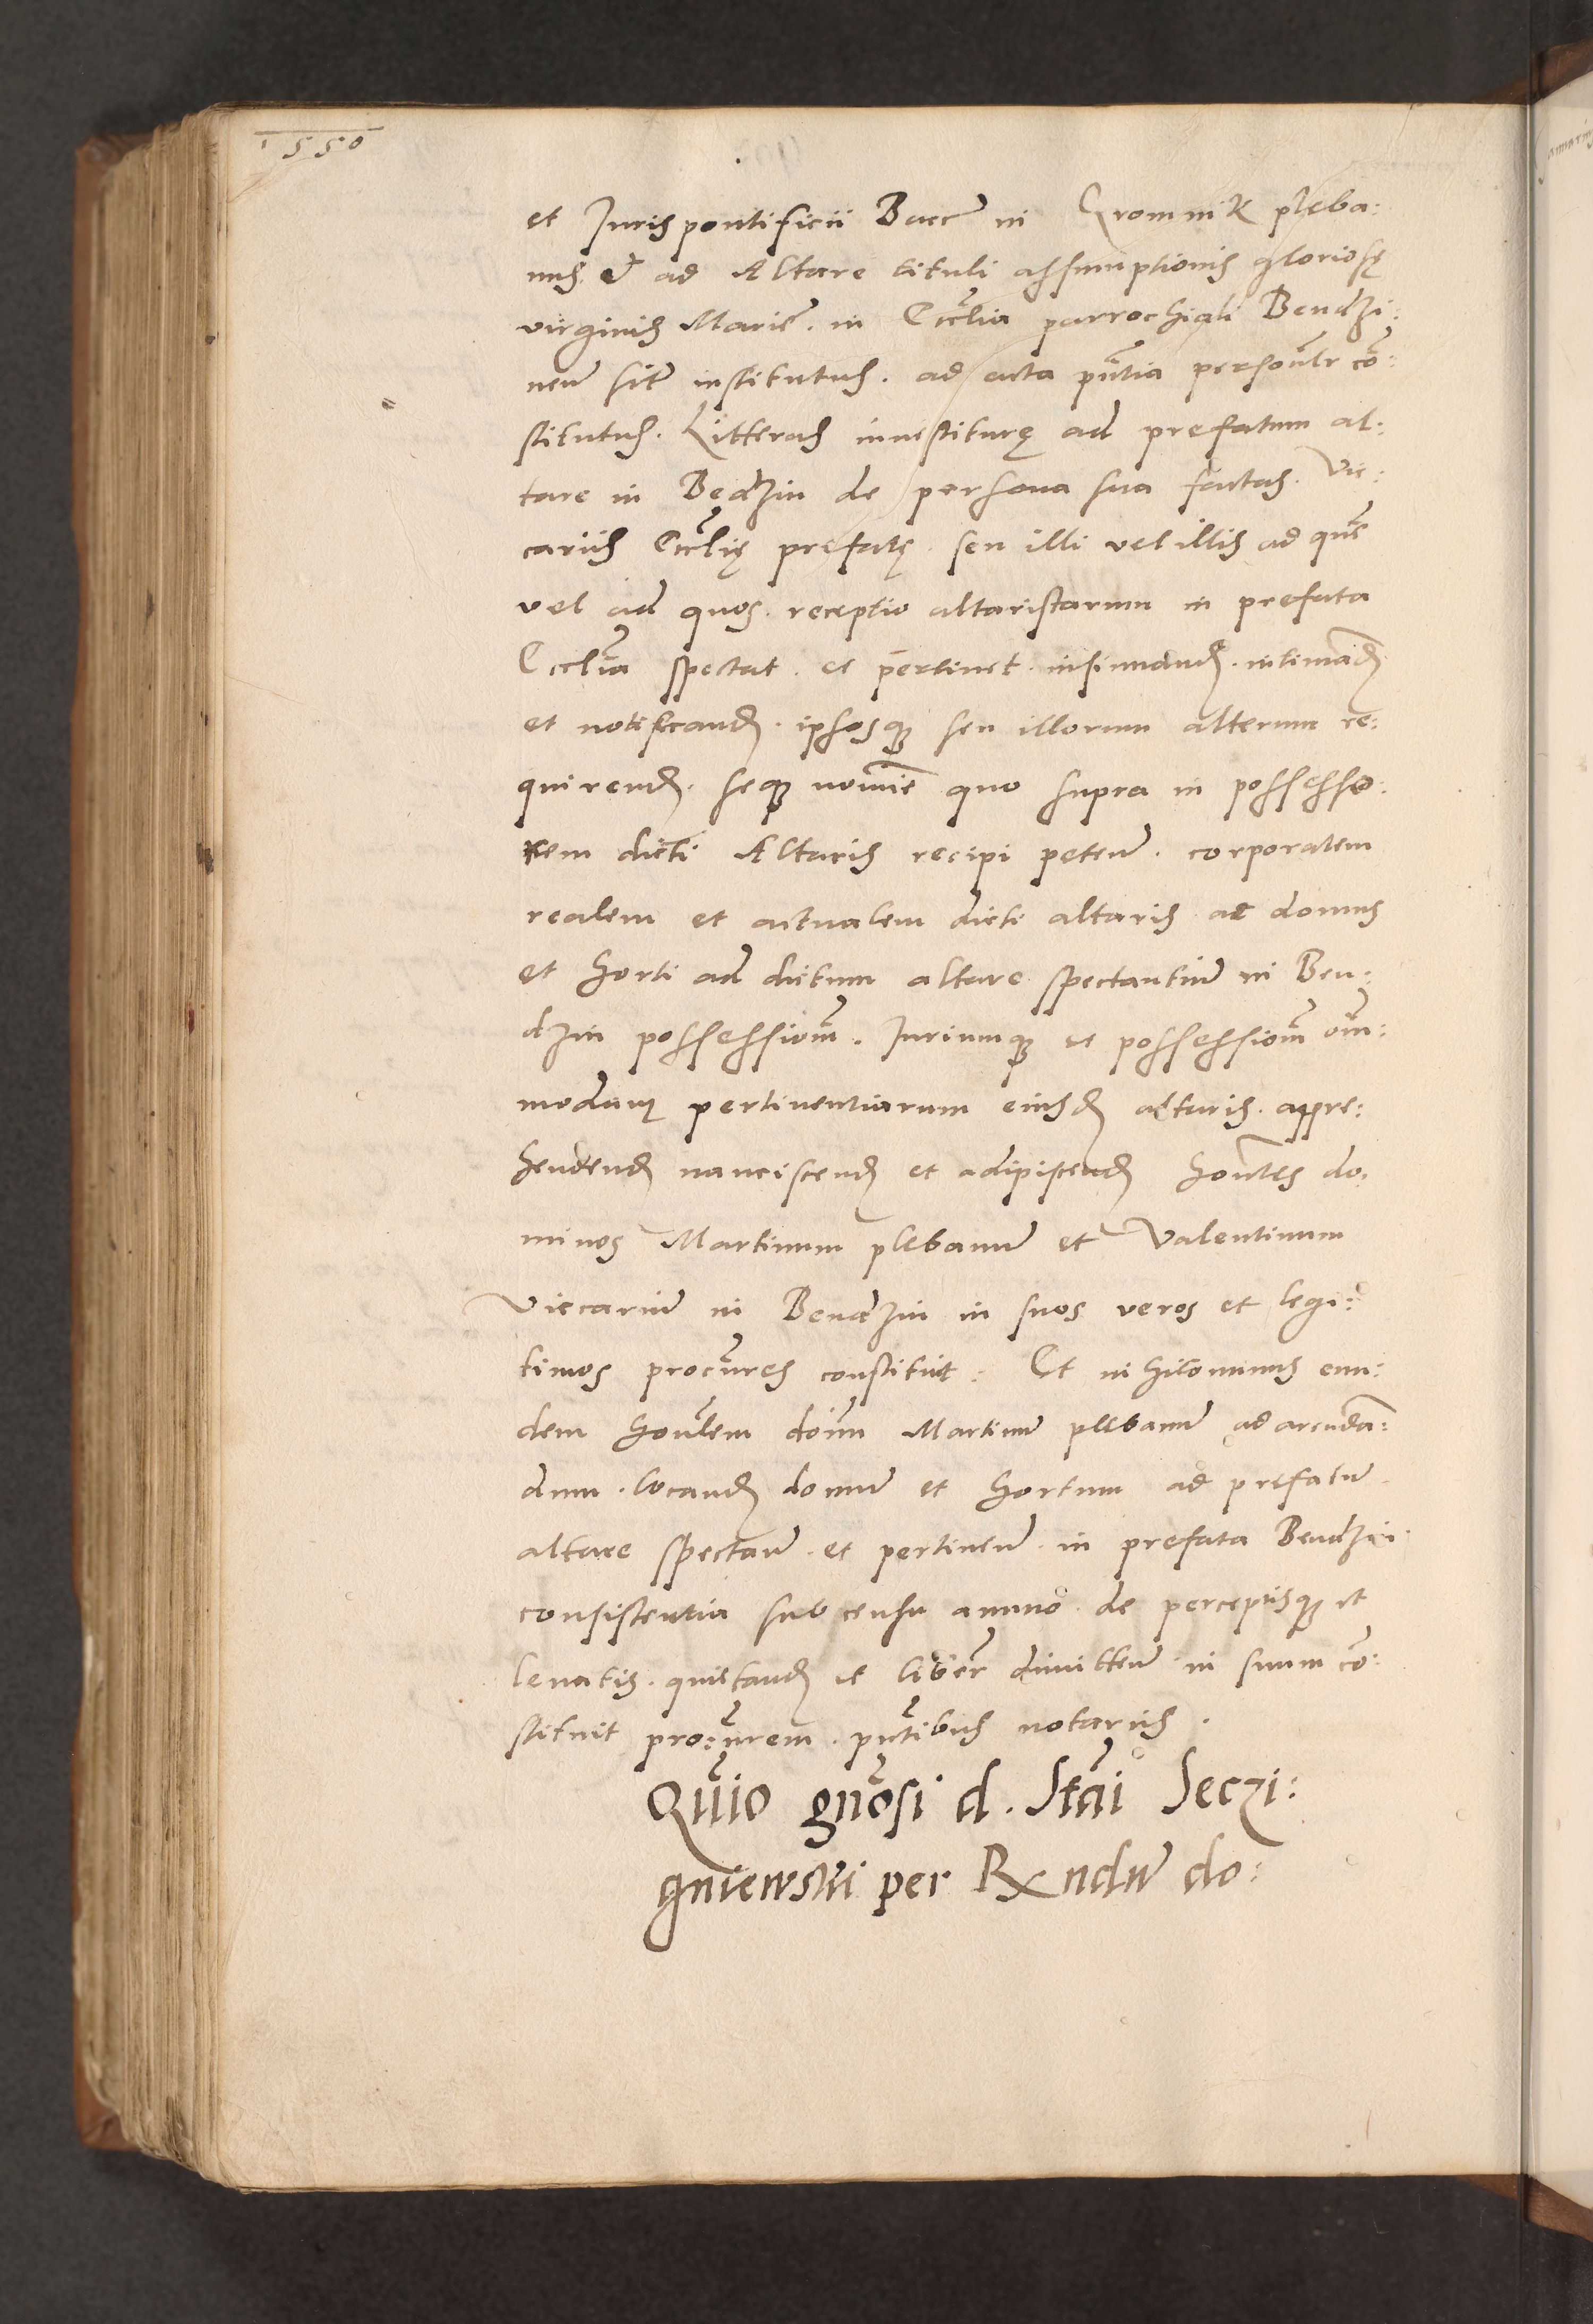 1550
et Juris pontificii Bacc̃ in Gromnik pleba:
nus & ad Altare tituli assumptionis gloriosę
virginis Marię. in Eccľia parrochiali Bendzi:
neñ siť institutus. ad acta pñtia persoñlr cõ:
stitutus. Litteras inuestiturę ad prefatum al:
tare in Bedzin de persona sua factas. Vic:
cariis Eccľię prefatę. seu illi vel illis ad quẽ
vel ad quos. receptio altaristarum in prefata
Eccľia spectat. et pertinet. insinuand. intimãd
et notificand. ipsosq; seu illorum alterum re:
quirend. seq; nomĩe quo supra in possesso:
rem dicti Altaris recipi peteñ. corporalem
realem et actualem dicti altaris ac domus
et horti ad dictum altare spectantiũ in Ben:
dzin possessioñm. Juriumq; et possessioñm oĩm:
modamq; pertinentiarum eiusd altaris. appre:
hendend nanciscend et adipiscend hoñles do:
minos Martinum plebanũ et Valentinum
Viccariũ in Bendzin in suos veros et legi:
timos procũres constituit. Et nihilominus eun:
dem hoñlem doĩm Martinũ plebanũ ad arendã:
dum. locand domũ et hortum ad prefatũ
altare spectañ. et pertineñ. in prefata Bendzin
consistentia sub censu annuo. de perceptisq; et
leuatis. quittand et liberũ dimitteñ in suum cõ:
stituit procũrem. pñtibus notariis.
Quĩo gñosi d. Stãi Seczi:
gniewski per Rxndũ do: